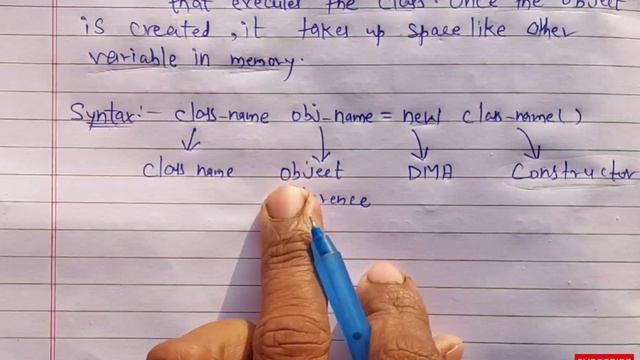 that executes the class. Once the object
is created, it takes up space like other
variable in memory.
Syntax:- class-name obj-name = new class-name()
class name object DMA Constructor